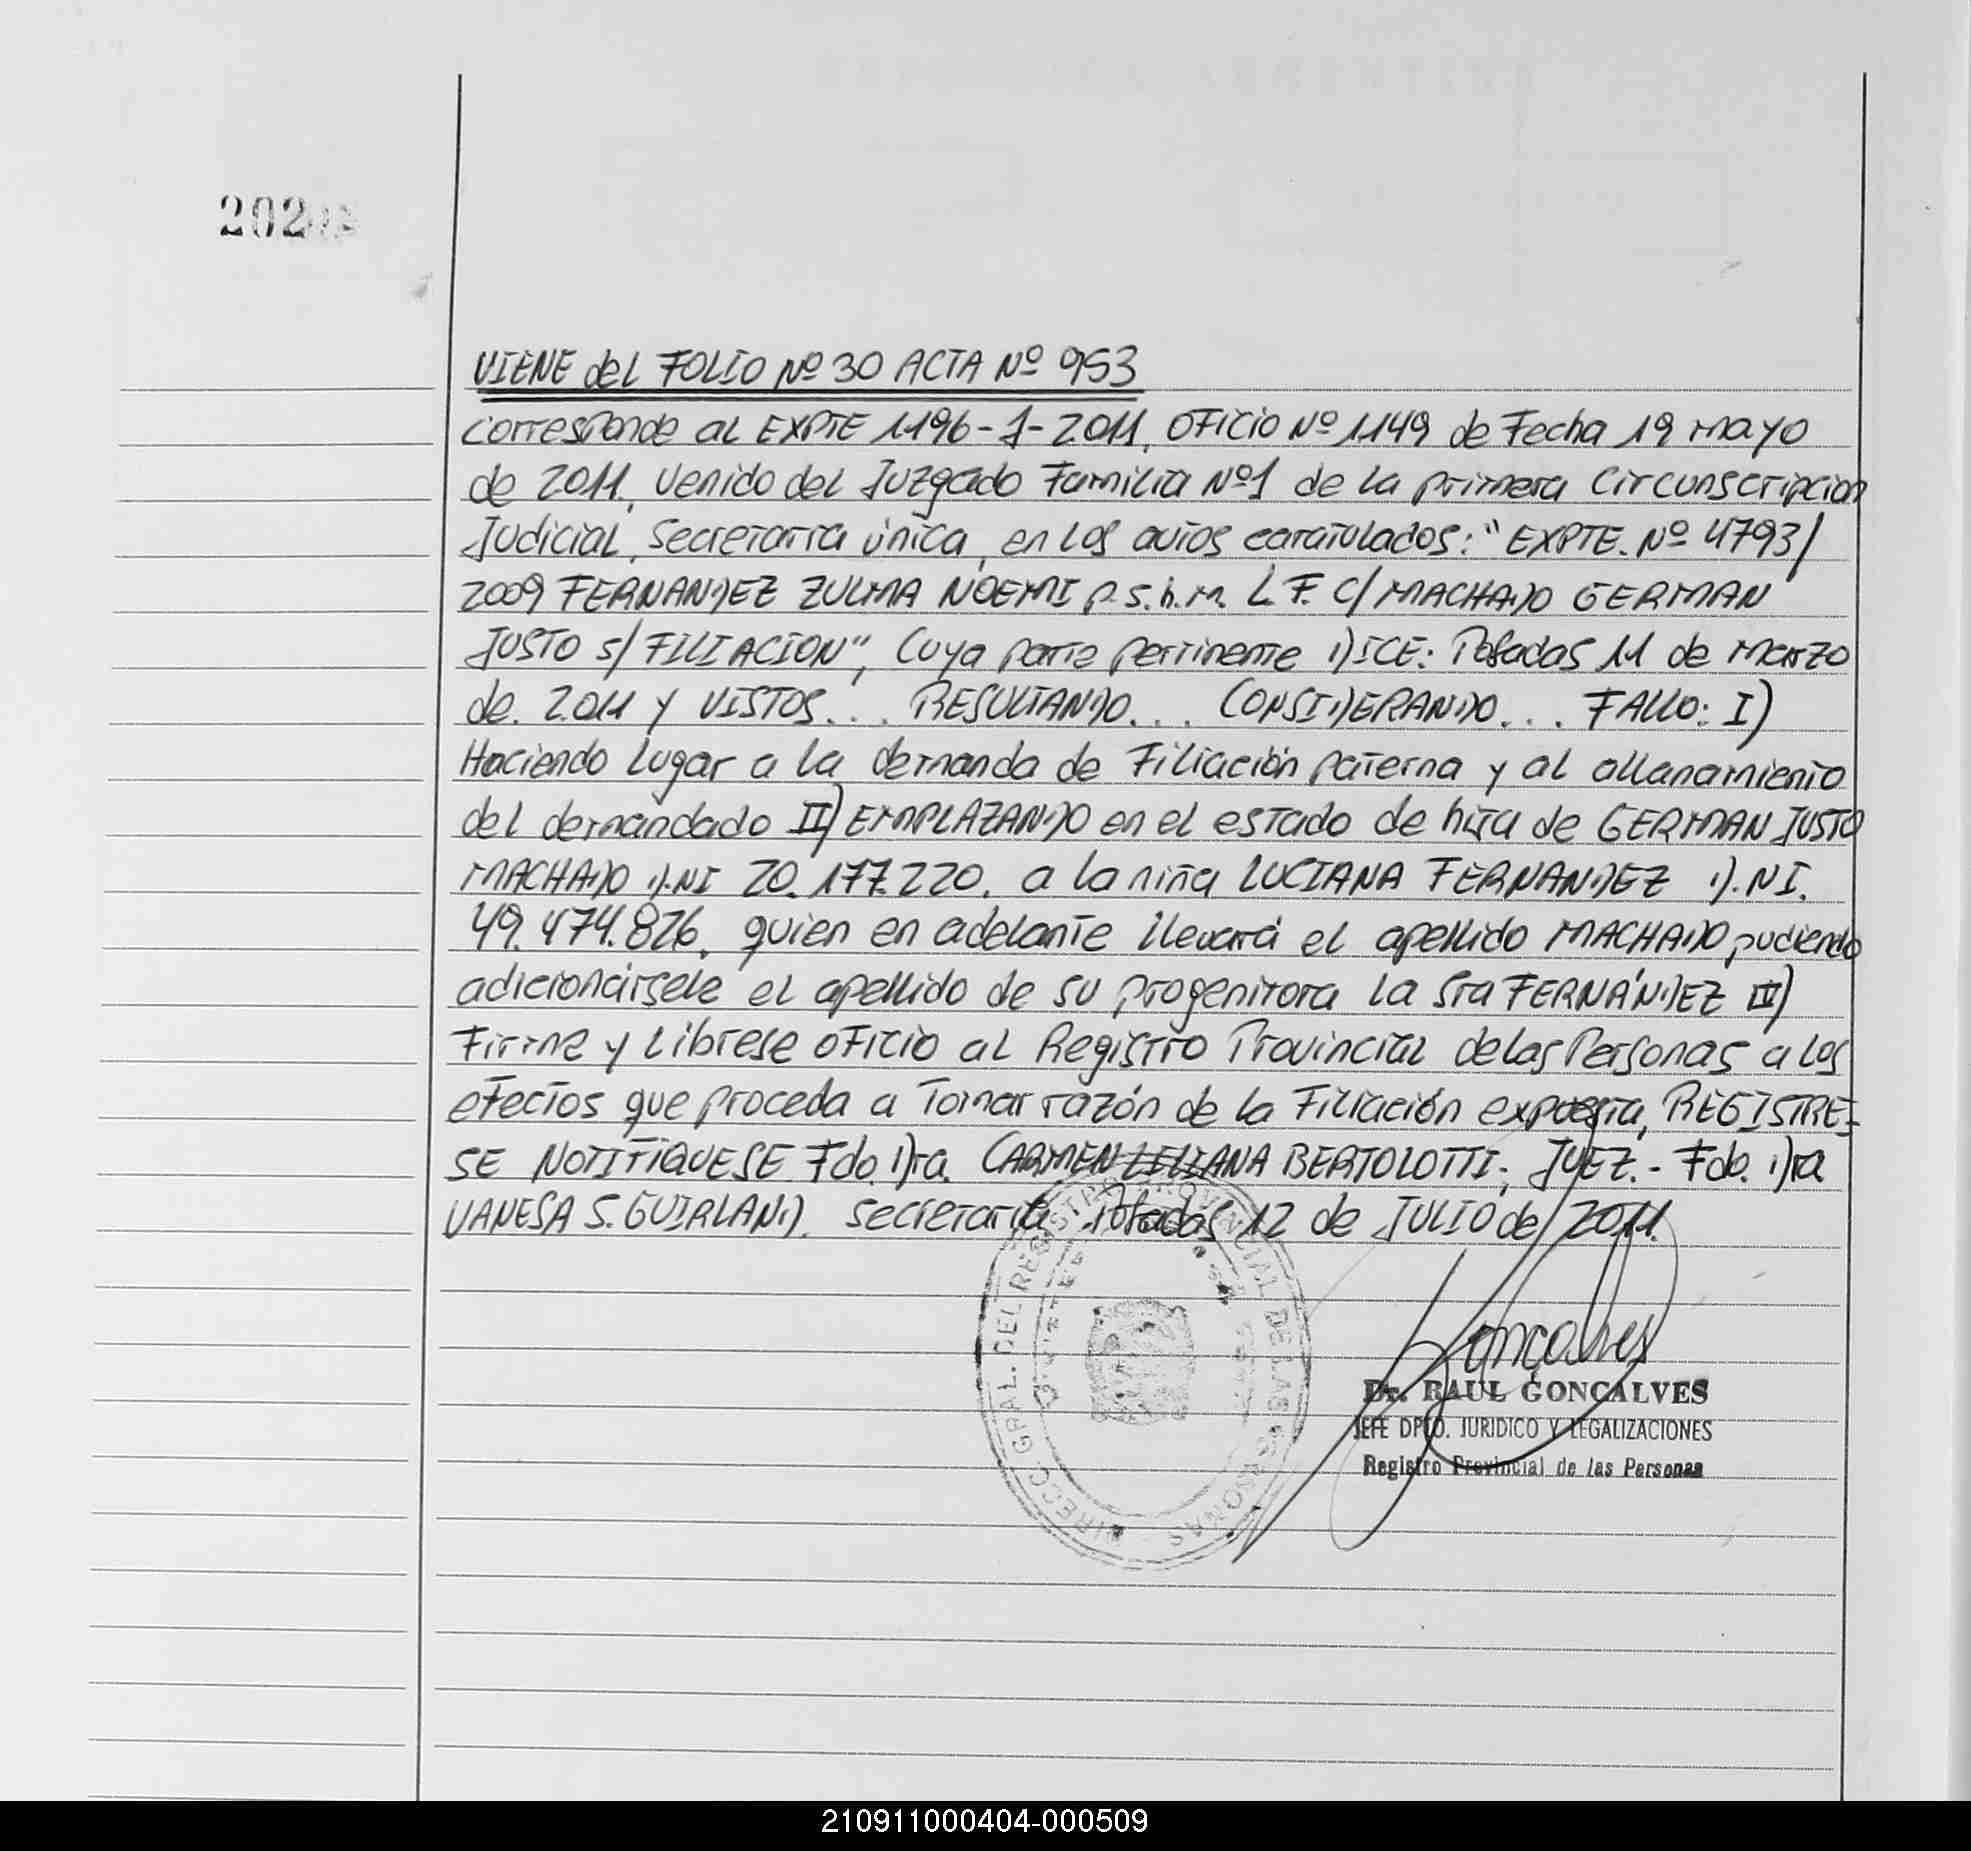 202
VIENE del FOLIO Nº 30 ACTA Nº 953
corresponde al EXPTE 1196-J-2011, OFICIO Nº 1149 de Fecha 19 mayo
de 2011, venido del Juzgado Familia Nº1 de la primera Circunscripcion
Judicial, Secretaria única, en los autos caratulados: "EXPTE. Nº 4793/
2009 FERNANDEZ ZULMA NOEMI p.s.h.m. L.F. C/ MACHADO GERMAN
JUSTO s/ FILIACION", Cuya parte pertinente DICE: Posadas 11 de marzo
de 2011 y VISTOS... RESULTANDO... CONSIDERANDO... FALLO: I)
Haciendo lugar a la demanda de Filiación paterna y al allanamiento
del demandado II) EMPLAZANDO en el estado de hija de GERMAN JUSTO
MACHADO D.NI 20.177.220, a la niña LUCIANA FERNANDEZ D.NI.
49.474.826, quien en adelante llevará el apellido MACHADO, pudiendo
adicionársele el apellido de su progenitora la Sra FERNÁNDEZ III)
Firme y Librese oficio al Registro Provincial de las Personas a los
efectos que proceda a Tomar razón de la Filiación expuesta, REGISTRE-
SE NOTIFIQUESE Fdo. Dra. CARMEN LILIANA BERTOLOTTI; JUEZ.- Fdo. Dra
VANESA S. GUIRLAND, Secretaria Posadas 12 de JULIO de 2011.
DIRECC. GRAL. DEL REGISTRO PROVINCIAL DE LAS PERSONAS
Goncalves
Dr. RAUL GONCALVES
JEFE DPTO. JURIDICO Y LEGALIZACIONES
Registro Provincial de las Personas
210911000404-000509